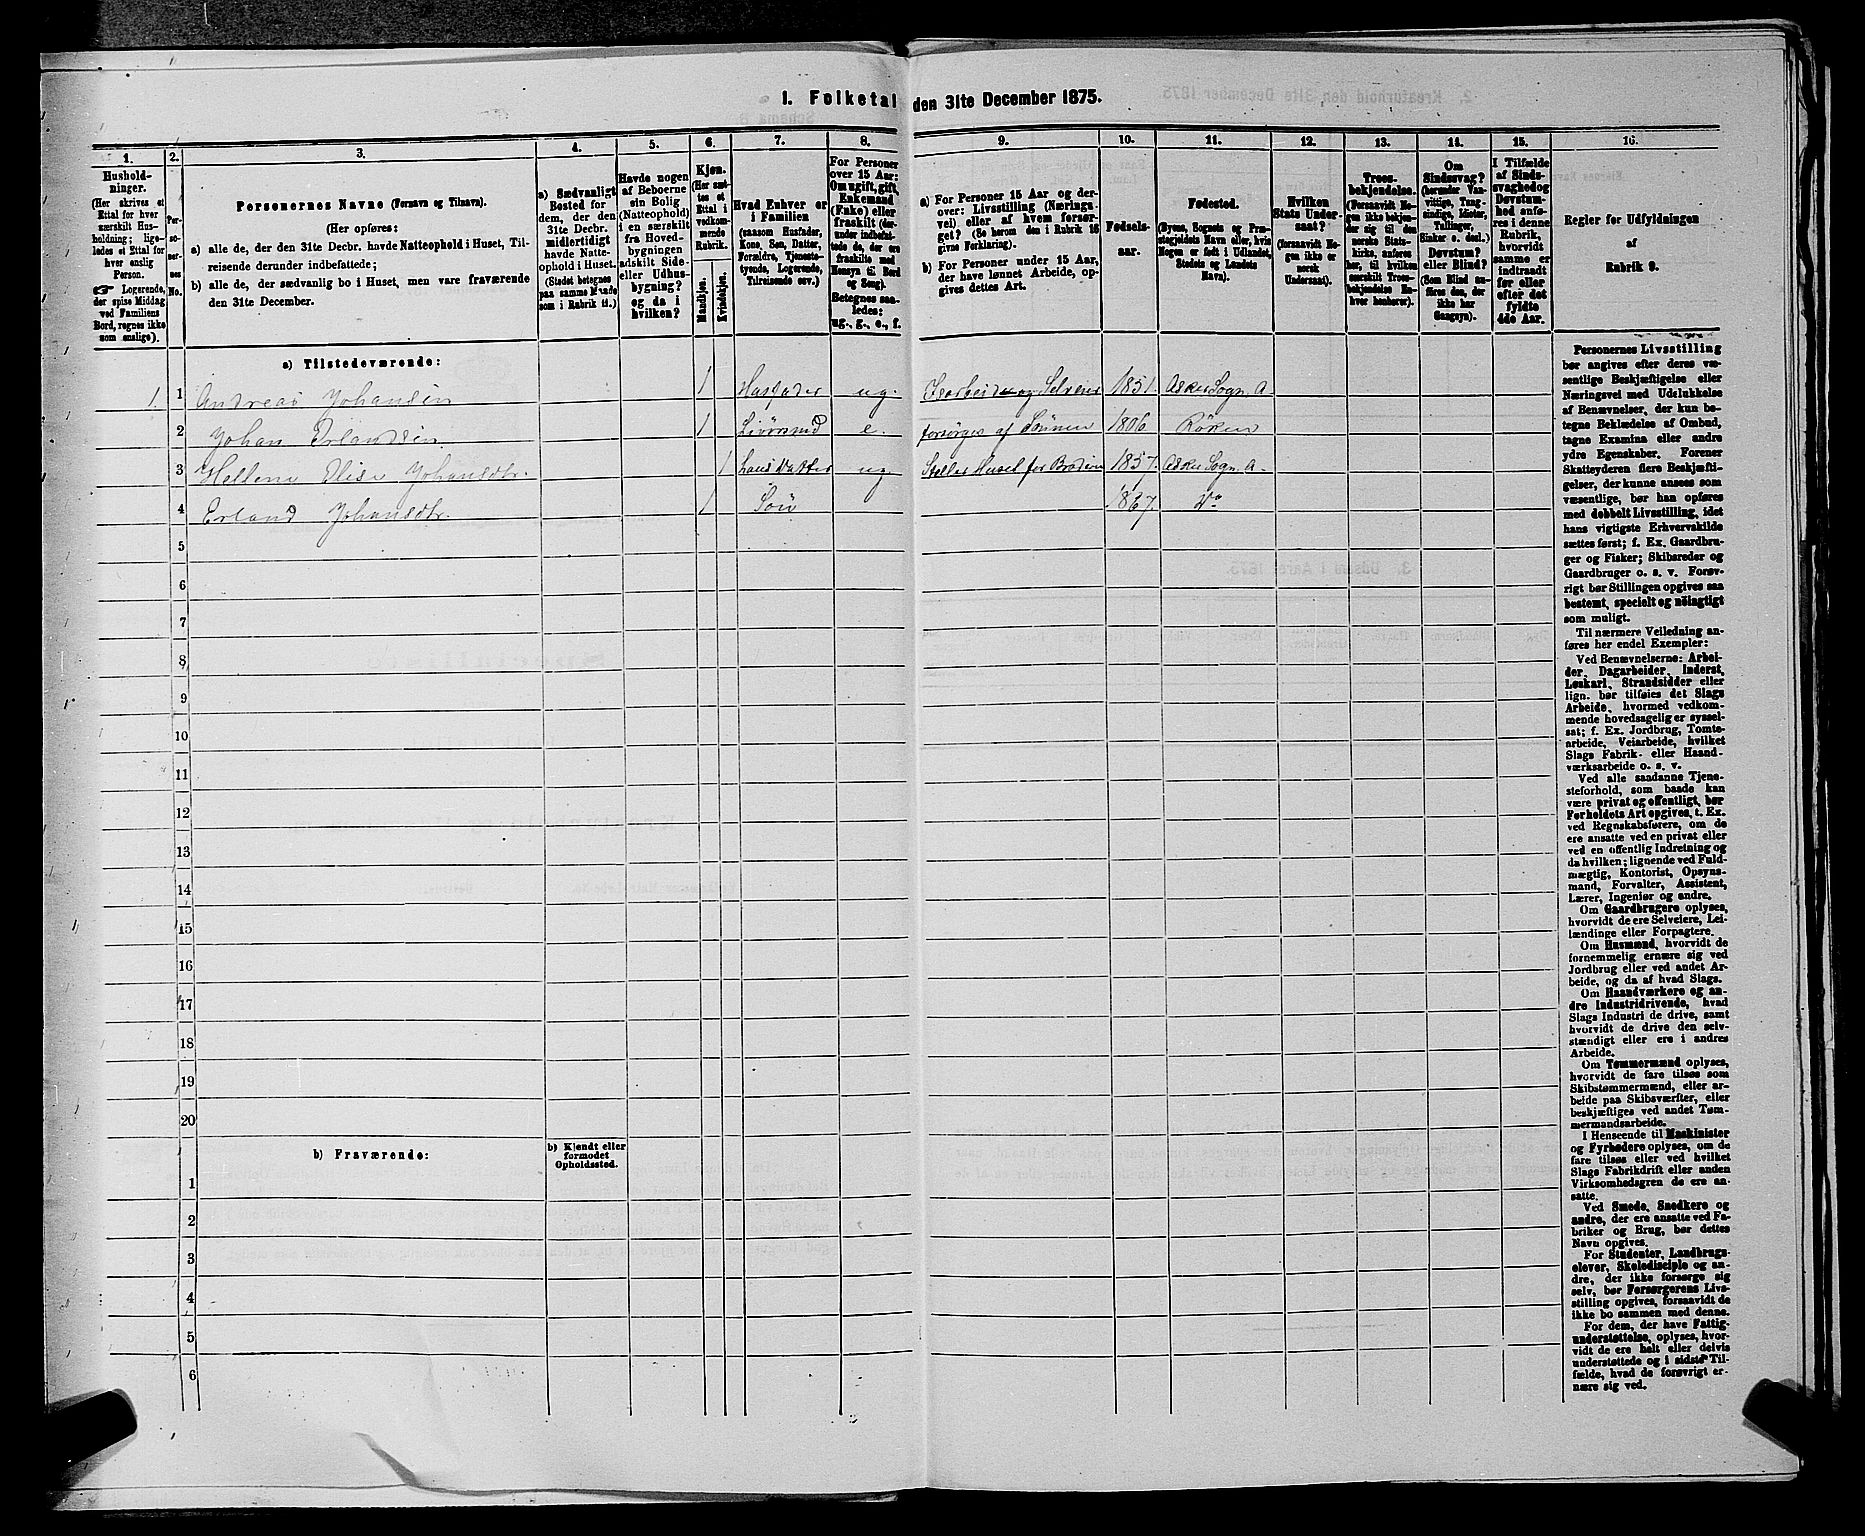 1. Folketal den 31te December 1875.
1. 2. 3. 4. 5. 6. 7. 8. 9. 10. 11. 12. 13. 14. 15. 16.
Hushold-
ninger.
(Her skrives et
Ettal for hver
særskilt Hus-
holdning; lige-
ledes et Ettal for
hver enslig
Person.
☛ Logerende,
der spise Middag
ved Familiens
Bord, regnes ikke
som enslige).
Per-
so-
ner-
nes
No.
Personernes Navne (Fornavn og Tilnavn).
(Her opføres:
a) alle de, der den 31te Decbr. havde Natteophold i Huset, Til-
reisende derunder indbefattede;
b) alle de, der sædvanlig bo i Huset, men vare fraværende
den 31te December.
a) Sædvanligt
Bosted for
dem, der den
31te Decbr.
midlertidigt
havde Natte-
ophold i Huset.
(Stedet betegnes
paa samme Maade
som i Rubrik 11.)
Havde nogen
af Beboerne
sin Bolig
(Natteophold)
i en særskilt
fra Hoved-
bygningen
adskilt Side-
eller Udhus-
bygning?
og da i
hvilken?
Kjøn.
(Her sæt-
tes et
Ettal i
vedkom-
mende
Rubrik.
Mandkjøn.
Kvindekjøn.
Hvad Enhver er
i Familien
(saasom Husfader,
Kone, Søn, Datter,
Forældre, Tjeneste-
tyende, Logerende,
Tilreisende osv.)
For Personer
over 15 Aar:
Om ugift, gift,
Enkemand
(Enke) eller
fraskilt (der-
under indbefat-
tede de, der ere
fraskilte med
Hensyn til Bord
og Seng).
Betegnes saa-
ledes:
ug., g., e., f.
a) For Personer 15 Aar og der-
over: Livsstilling (Nærings-
vei) eller af hvem forsør-
get? (Se herom den i Rubrik 16
givne Forklaring).
b) For Personer under 15 Aar,
der have lønnet Arbeide, op-
gives dettes Art.
Fødsels-
aar.
Fødested.
(Byens, Sognets og Præ-
stegjeldets Navn eller, hvis
Nogen er født i Udlandet,
Stedets og Landets
Navn).
Hvilken
Stats Under-
saat?
(forsaavidt No-
gen ikke er
norsk
Undersaat).
Troes-
bekjendelse.
(Forsaavidt No-
gen ikke bekjen-
der sig til den
norske Stats-
kirke, anføres
her, til hvilken
særskilt Troes-
bekjendelse En-
hver henhører).
Om
Sindssvag?
(herunder Van-
vittige, Tung-
sindige, Idioter,
Sinker o. desl.)
Døvstum?
eller Blind?
(Som Blind an-
føres den, der
ikke har
Gangsyn).
I Tilfælde
af Sinds-
svaghed og
Døvstum-
hed anfø-
res i denne
Rubrik,
hvorvidt
samme er
indtraadt
før eller
efter det
fyldte
4de Aar.
Regler for Udfyldningen
af
Rubrik 9.
a) Tilstedeværende:
1. 1 Andreas Johansen 1 Husfader ug. og Selveier 1851. Asker Sogn. A.
2 Johan Erlandsen 1 e. forsørges af Sønnen 1806 Röken
3 Hellene Elise Johansdtr. 1 hans Datter ug. Steller Huset for Broderen 1857. Asker Sogn. A.
4 Erland Johansdtr. 1 Søn 1867. Do
5
6
7
8
9
10
11
12
13
14
15
16
17
18
19
20
b) Fraværende:
b) Kjendt eller
formodet
Opholdssted.
1
2
3
4
5
6
Personernes Livsstilling
bør angives efter deres væ-
sentlige Beskjæftigelse eller
Næringsvei med Udelukkelse
af Benævnelser, der kun be-
tegne Beklædelse af Ombud,
tagne Examina eller andre
ydre Egenskaber. Forener
Skatteyderen flere Beskjæfti-
gelser, der kunne ansees som
væsentlige, bør han opføres
med dobbelt Livsstilling, idet
hans vigtigste Erhvervskilde
sættes først; f. Ex. Gaardbru-
ger og Fisker; Skibsreder og
Gaardbruger o. s. v. Forøv-
rigt bør Stillingen opgives saa
bestemt, specielt og nøiagtigt
som muligt.
Til nærmere Veiledning an-
føres her endel Exempler:
Ved Benævnelserne: Arbei-
der, Dagarbeider, Inderst,
Løskarl, Strandsidder eller
lign. bør tilføies det Slags
Arbeide, hvormed vedkom-
mende hovedsagelig er syssel-
sat; f. Ex. Jordbrug, Tomte-
arbeide, Veiarbeide, hvilket
Slags Fabrik- eller Haand-
værksarbeide o. s. v.
Ved alle saadanne Tjene-
steforhold, som baade kan
være privat og offentligt, bør
Forholdets Art opgives, t. Ex.
ved Regnskabsførere, om de
ere ansatte ved en privat eller
ved en offentlig Indretning og
da hvilken; lignende ved Fuld-
mægtig, Kontorist, Opsyns-
mand, Forvalter, Assistent,
Lærer, Ingeniør og andre.
Om Gaardbrugere oplyses,
hvorvidt de ere Selveiere, Lei-
lændinge eller Forpagtere.
Om Husmænd, hvorvidt de
fornemmelig ernære sig ved
Jordbrug eller ved andet Ar-
beide, og da af hvad Slags.
Om Haandværkere og an-
dre Industridrivende, hvad
Slags Industri de drive, samt
hvorvidt de drive den selv-
stændigt eller ere i andres
Arbeide.
Om Tømmermænd oplyses,
hvorvidt de fare tilsøs som
Skibstømmermænd, eller ar-
beide paa Skibsværfter, eller
beskjæftiges ved andet Tøm-
mermandsarbeide.
I Henseende til Maskinister
og Fyrbødere oplyses, om de
fare tilsøs eller ved hvilket
Slags Fabrikdrift eller anden
Virksomhedsgren de ere an-
satte.
Ved Smede, Snedkere og
andre, der ere ansatte ved Fa-
briker og Brug, bør dettes
Navn opgives.
For Studenter, Landbrugs-
elever, Skoledisciple og an-
dre, der ikke forsørge sig
selv, bør Forsørgerens Livs-
stilling opgives, forsaavidt de
ikke bo sammen med denne.
For dem, der have Fattig-
understøttelse, oplyses, hvor-
vidt de ere helt eller delvis
understøttede og i sidste Til-
fælde, hvad de forøvrigt er-
nære sig ved.